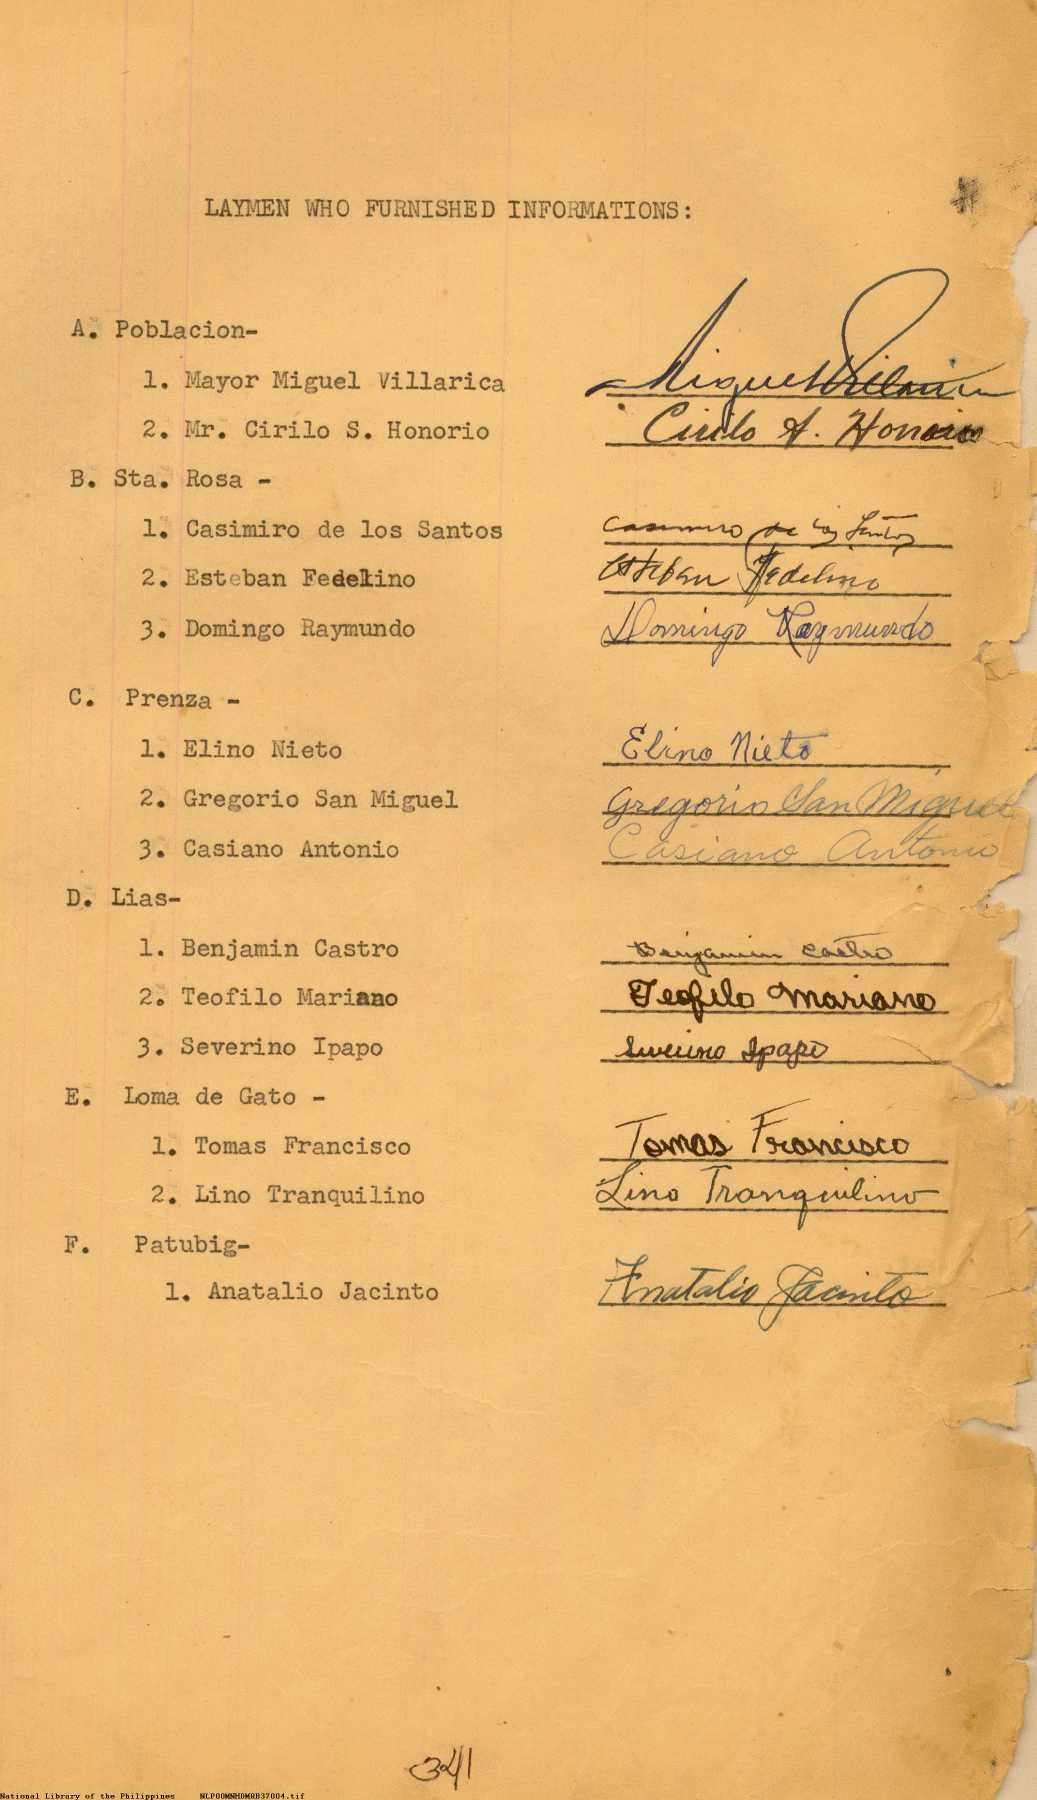 LAYMEN WHO FURNISHED INFORMATIONS:
A. Poblacion-
1. Mayor Miguel Villarica Miguel Villarica
2. Mr. Cirilo S. Honorio Cirilo S. Honorio
B. Sta. Rosa -
1. Casimiro de los Santos Casimiro de los Santos
2. Esteban Fedelino Esteban Fedelino
3. Domingo Raymundo Domingo Raymundo
C. Prenza -
1. Elino Nieto Elino Nieto
2. Gregorio San Miguel Gregorio San Miguel
3. Casiano Antonio Casiano Antonio
D. Lias-
1. Benjamin Castro Benjamin Castro
2. Teofilo Mariano Teofilo Mariano
3. Severino Ipapo Severino Ipapo
E. Loma de Gato -
1. Tomas Francisco Tomas Francisco
2. Lino Tranquilino Lino Tranquilino
F. Patubig-
1. Anatalio Jacinto Anatalio Jacinto
341
National Library of the Philippines NLPOOMNHDMRB37004.tif